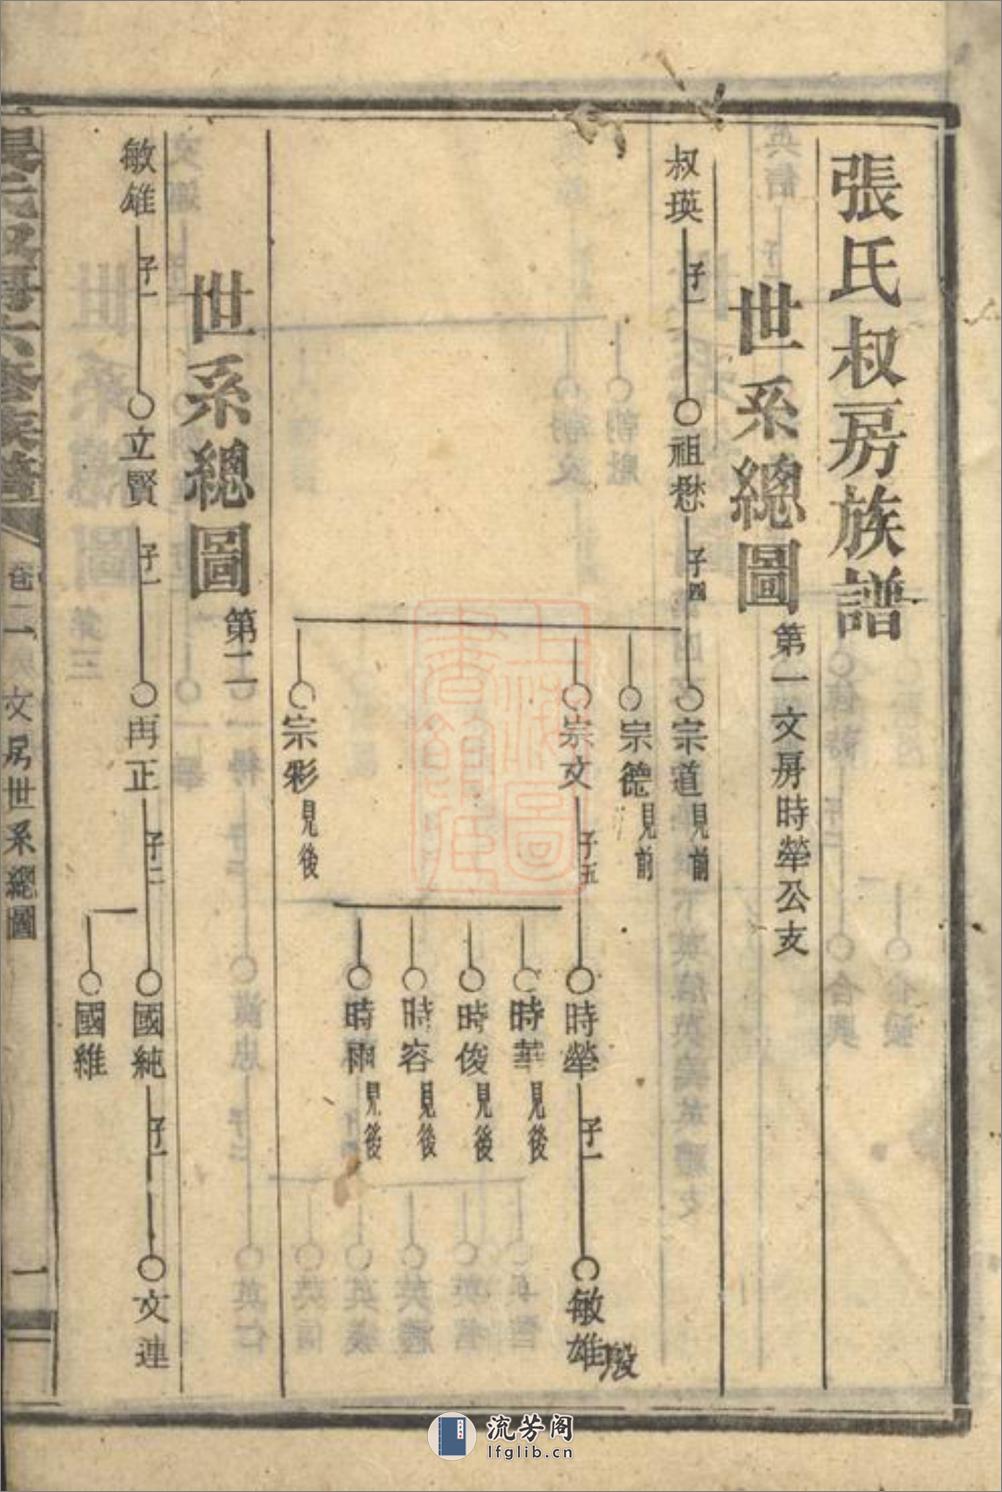 張氏叔房族譜
世系總圖 第一文房時犖公支
叔瑛 子一
祖愁 子四
宗道 見前
宗德 見前
宗文 子五
宗彩 見後
時犖 子一
時華 見後
時俊 見後
時容 見後
時雨 見後
敏雄
世系總圖 第二
敏雄 子一
立賢 子一
再正 子二
國純 子一
國維
文連
張氏叔房六修族譜
卷二 文房世系總圖
一
上海圖書館藏
流芳阁
lfglib.cn